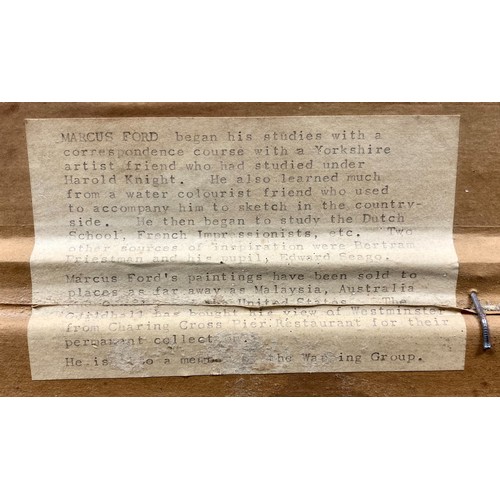 MARCUS FORD began his studies with a
correspondence course with a Yorkshire
artist friend who had studied under
Harold Knight. He also learned much
from a water colourist friend who used
to accompany him to sketch in the country-
side. He then began to study the Dutch
School, French Impressionists, etc. Two
other sources of inspiration were Bertram
Priestman and his pupil, Edward Seago.
Marcus Ford's paintings have been sold to
places as far away as Malaysia, Australia
United States. The
Guildhall has bought a view of Westminster
from Charing Cross Pier Restaurant for their
permanent
He is a the Wapping Group.